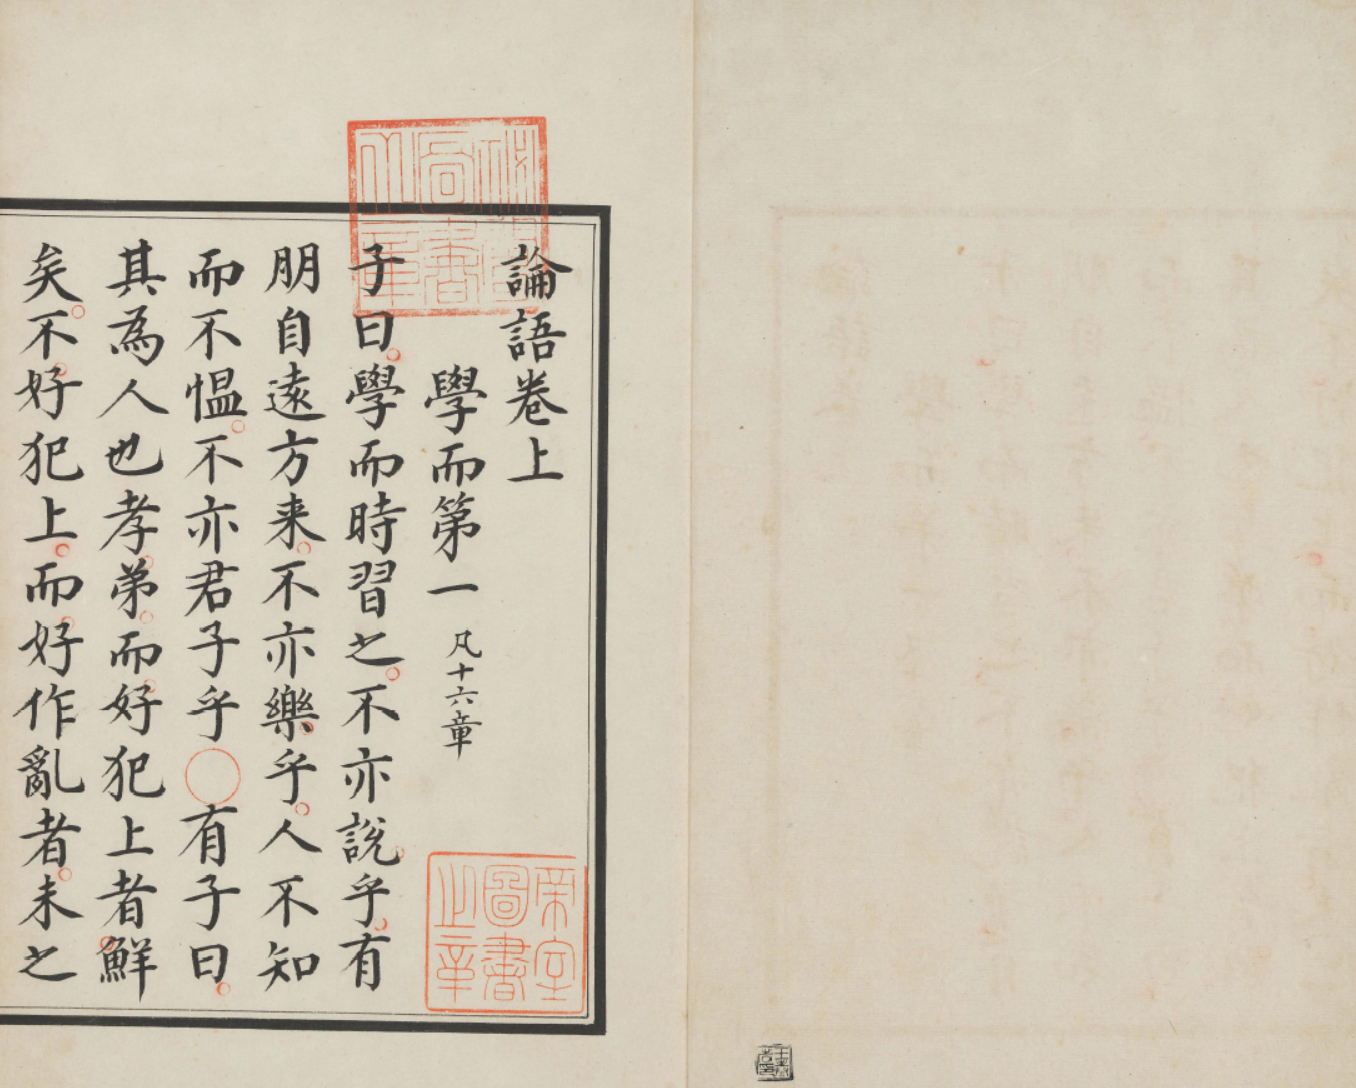 論語卷上
學而第一 凡十六章
子曰學而時習之不亦說乎有
朋自遠方来不亦樂乎人不知
而不愠不亦君子乎○有子曰
其為人也孝弟而好犯上者鮮
矣不好犯上而好作亂者未之
圖書之章